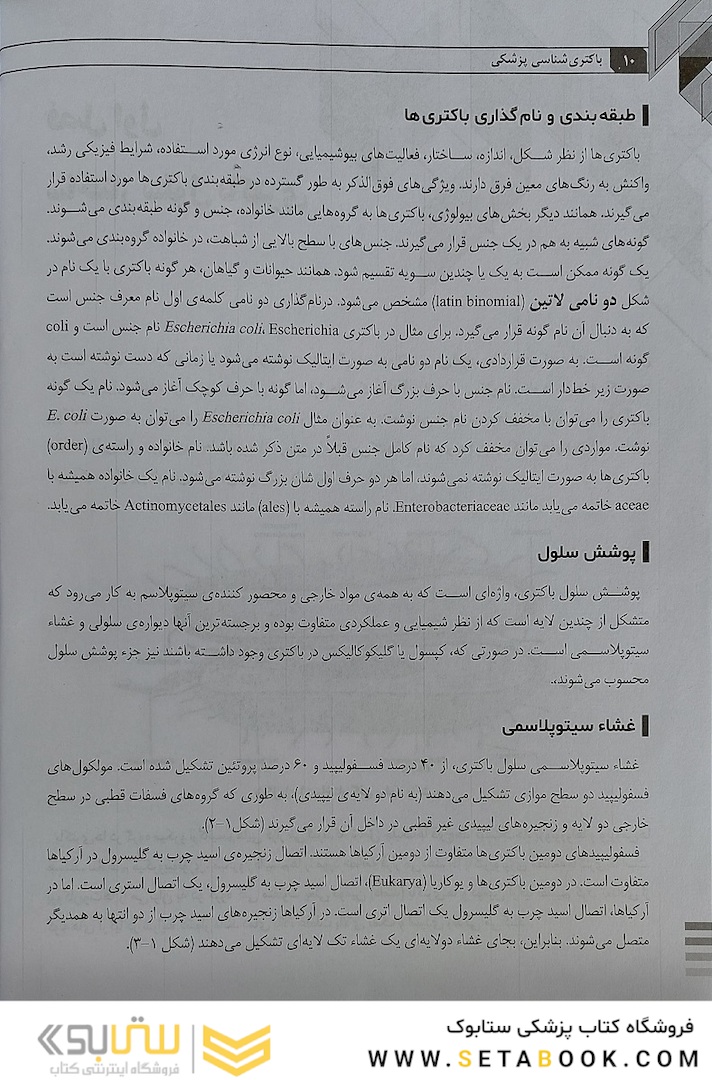 ۱۰ باکتری‌شناسی پزشکی
طبقه‌بندی و نام‌گذاری باکتری‌ها
باکتری‌ها از نظر شکل، اندازه، ساختار، فعالیت‌های بیوشیمیایی، نوع انرژی مورد استفاده، شرایط فیزیکی رشد،
واکنش به رنگ‌های معین فرق دارند. ویژگی‌های فوق‌الذکر به طور گسترده در طبقه‌بندی باکتری‌ها مورد استفاده قرار
می‌گیرند. همانند دیگر بخش‌های بیولوژی، باکتری‌ها به گروه‌هایی مانند خانواده، جنس و گونه طبقه‌بندی می‌شوند.
گونه‌های شبیه به هم در یک جنس قرار می‌گیرند. جنس‌های با سطح بالایی از شباهت، در خانواده گروه‌بندی می‌شوند.
یک گونه ممکن است به یک یا چندین سویه تقسیم شود. همانند حیوانات و گیاهان، هر گونه باکتری با یک نام در
شکل دو نامی لاتین (latin binomial) مشخص می‌شود. درنام‌گذاری دو نامی کلمه‌ی اول نام معرف جنس است
که به دنبال آن نام گونه قرار می‌گیرد. برای مثال در باکتری Escherichia coli، Escherichia نام جنس است و coli
گونه است. به صورت قراردادی، یک نام دو نامی به صورت ایتالیک نوشته می‌شود یا زمانی که دست نوشته است به
صورت زیر خط‌دار است. نام جنس با حرف بزرگ آغاز می‌شود، اما گونه با حرف کوچک آغاز می‌شود. نام یک گونه
باکتری را می‌توان با مخفف کردن نام جنس نوشت. به عنوان مثال Escherichia coli را می‌توان به صورت E. coli
نوشت. مواردی را می‌توان مخفف کرد که نام کامل جنس قبلاً در متن ذکر شده باشد. نام خانواده و راسته‌ی (order)
باکتری‌ها به صورت ایتالیک نوشته نمی‌شوند، اما هر دو حرف اول شان بزرگ نوشته می‌شود. نام یک خانواده همیشه با
aceae خاتمه می‌یابد مانند Enterobacteriaceae. نام راسته همیشه با (ales) مانند Actinomycetales خاتمه می‌یابد.
پوشش سلول
پوشش سلول باکتری، واژه‌ای است که به همه‌ی مواد خارجی و محصور کننده‌ی سیتوپلاسم به کار می‌رود که
متشکل از چندین لایه است که از نظر شیمیایی و عملکردی متفاوت بوده و برجسته‌ترین آنها دیواره‌ی سلولی و غشاء
سیتوپلاسمی است. در صورتی که، کپسول یا گلیکوکالیکس در باکتری وجود داشته باشند نیز جزء پوشش سلول
محسوب می‌شوند.
غشاء سیتوپلاسمی
غشاء سیتوپلاسمی سلول باکتری، از ۴۰ درصد فسفولیپید و ۶۰ درصد پروتئین تشکیل شده است. مولکول‌های
فسفولیپید دو سطح موازی تشکیل می‌دهند (به نام دو لایه‌ی لیپیدی)، به طوری که گروه‌های فسفات قطبی در سطح
خارجی دو لایه و زنجیره‌های لیپیدی غیر قطبی در داخل آن قرار می‌گیرند (شکل۱-۲).
فسفولیپیدهای دومین باکتری‌ها متفاوت از دومین آرکیاها هستند. اتصال زنجیره‌ی اسید چرب به گلیسرول در آرکیاها
متفاوت است. در دومین باکتری‌ها و یوکاریا (Eukarya)، اتصال اسید چرب به گلیسرول، یک اتصال استری است. اما در
آرکیاها، اتصال اسید چرب به گلیسرول یک اتصال اتری است. در آرکیاها زنجیره‌های اسید چرب از دو انتها به همدیگر
متصل می‌شوند. بنابراین، بجای غشاء دولایه‌ای یک غشاء تک لایه‌ای تشکیل می‌دهند (شکل ۱-۳).
فروشگاه کتاب پزشکی ستابوک
WWW.SETABOOK.COM
ستابوک
فروشگاه اینترنتی کتاب